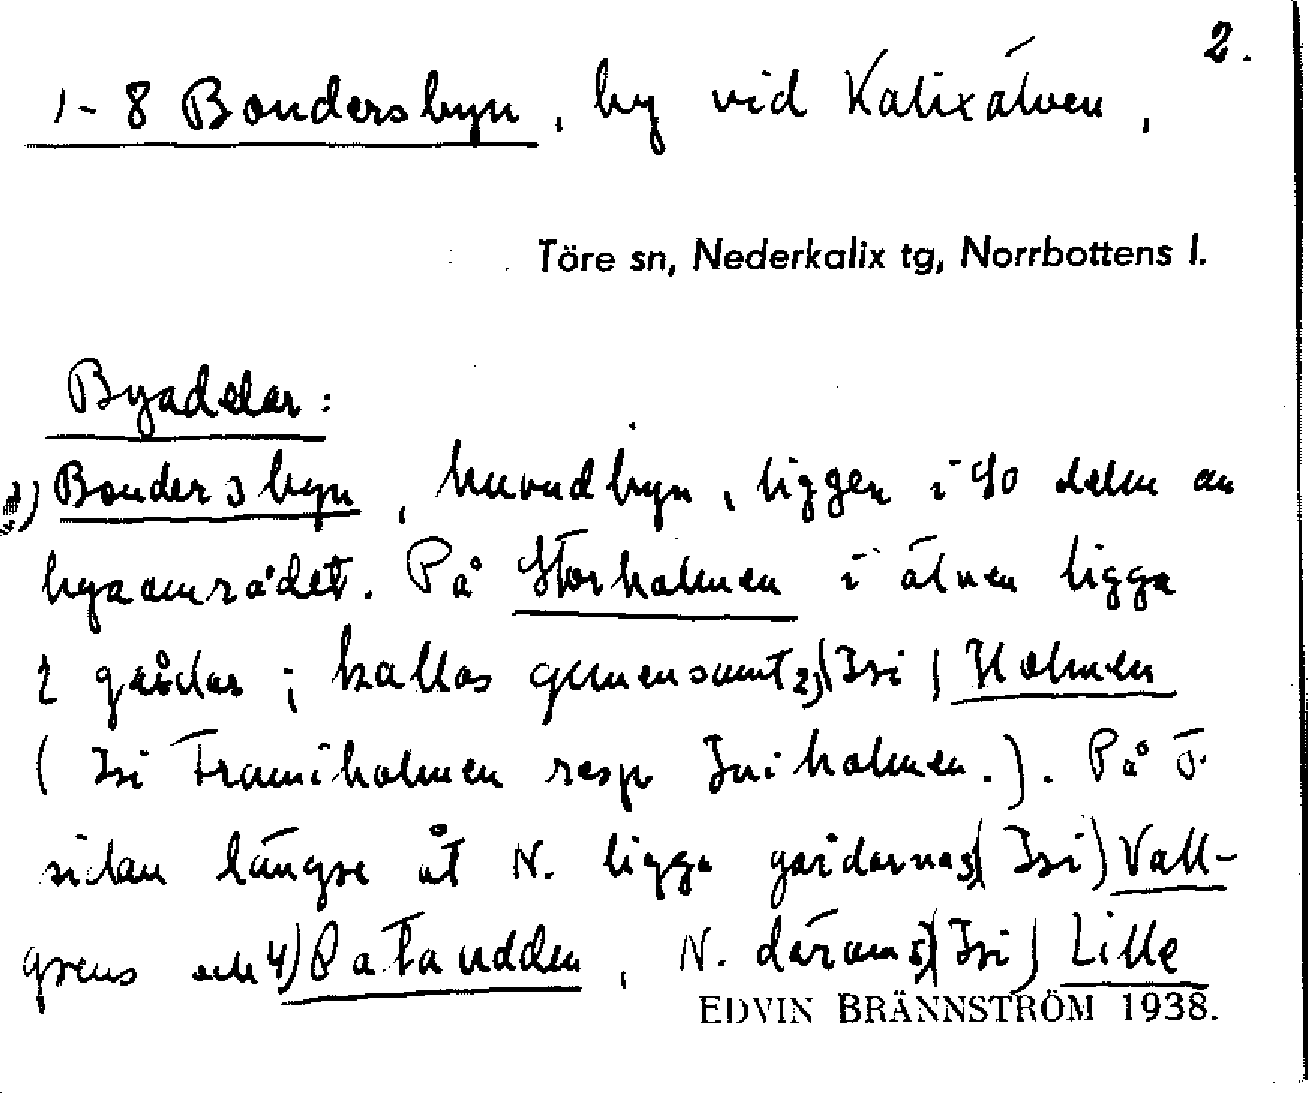 2.
1-8 Bondersbyn, by vid Kalixälven,
Töre sn, Nederkalix tg, Norrbottens l.
Byadelar:
1) Bondersbyn, huvudbyn, ligger i SO delen av
byaområdet. På Storholmen i älven ligga
2 gårdar; kallas gemensamt 2) (Isi) Holmen
(Isi Framiholmen resp Iniholmen.). På Ö.
sidan längre åt N. ligga gårdarna 3) (Isi) Vall-
grens och 4) Pataudden, N. därom 5) (Isi) Lille
EDVIN BRÄNNSTRÖM 1938.